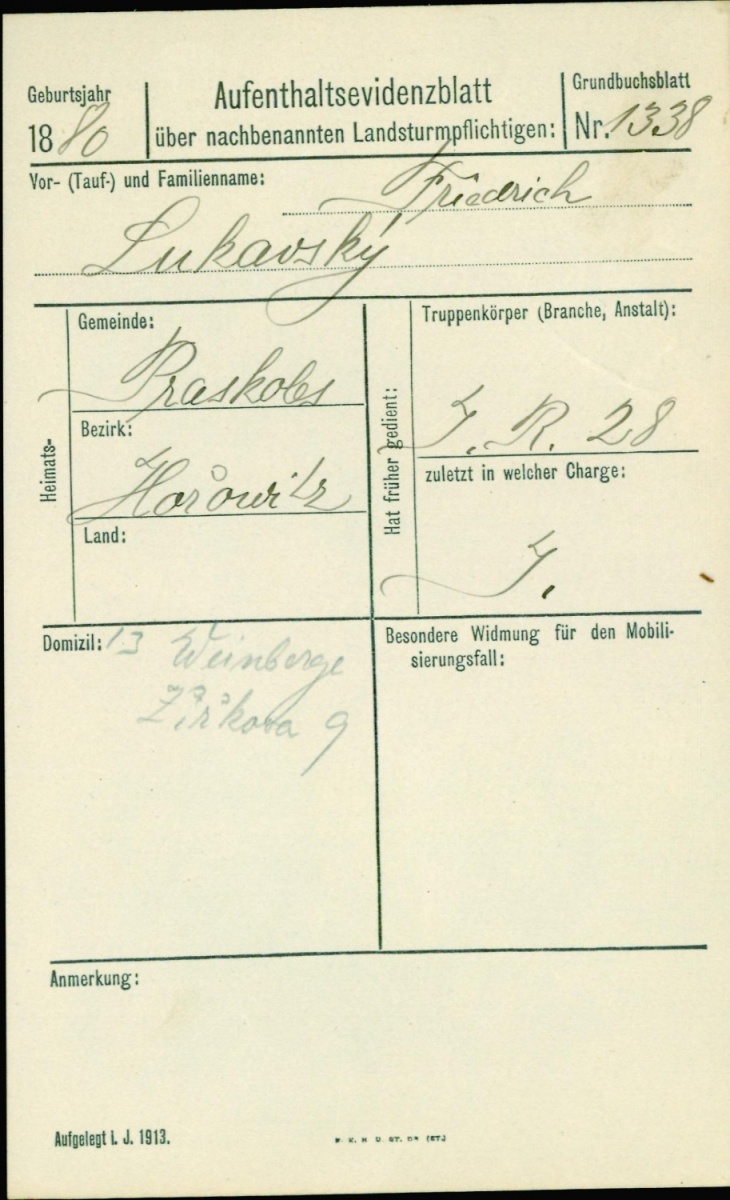 Geburtsjahr
1880
Aufenthaltsevidenzblatt
über nachbenannten Landsturmpflichtigen:
Grundbuchsblatt
Nr. 1338
Vor- (Tauf-) und Familienname:
Friedrich
Lukavský
Heimats-
Gemeinde:
Praskoles
Bezirk:
Hořowitz
Land:
Hat früher gedient:
Truppenkörper (Branche, Anstalt):
I. R. 28
zuletzt in welcher Charge:
I.
Domizil: 13 Weinberge
Žižkova 9
Besondere Widmung für den Mobili-
sierungsfall:
Anmerkung:
Aufgelegt i. J. 1913.